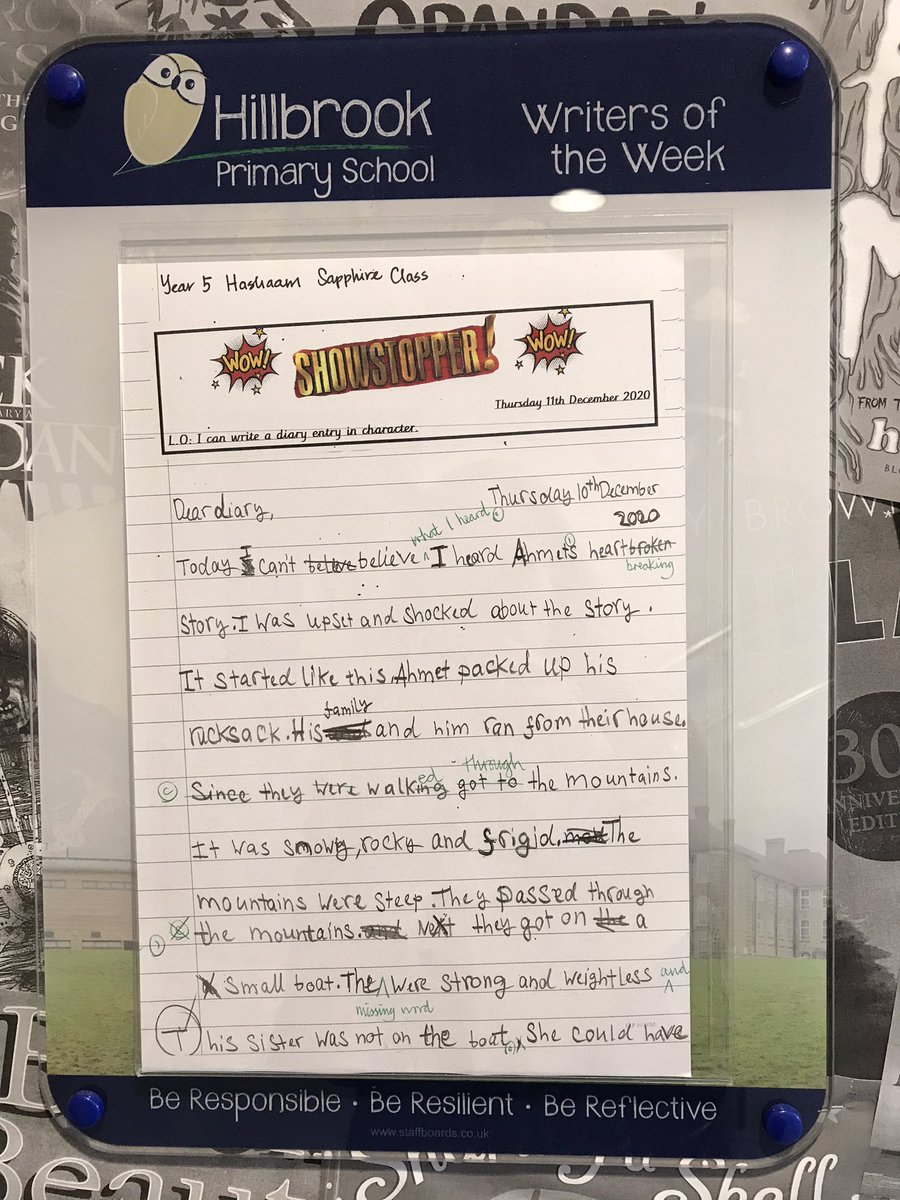 Hillbrook
Primary School
Writers of
the Week
Year 5 Hashaam Sapphire Class
WOW!
SHOWSTOPPER!
WOW!
Thursday 11th December 2020
L.O: I can write a diary entry in character.
Thursday 10th December
Dear diary,
2020
what I heard
Today I can't believe I heard Ahmet's heartbroken
breaking
story. I was upset and shocked about the story.
It started like this, Ahmet packed up his
family
rucksack. His and him ran from their house.
ed through
Since they were walking got to the mountains.
It was snowy, rocky and frigid. The
mountains were steep. They passed through
the mountains. and Next they got on the a
small boat. The were strong and weightless and
missing word
T his sister was not on the boat, She could have
Be Responsible · Be Resilient · Be Reflective
www.staffboards.co.uk
FROM T
30
ANNIVE
EDIT